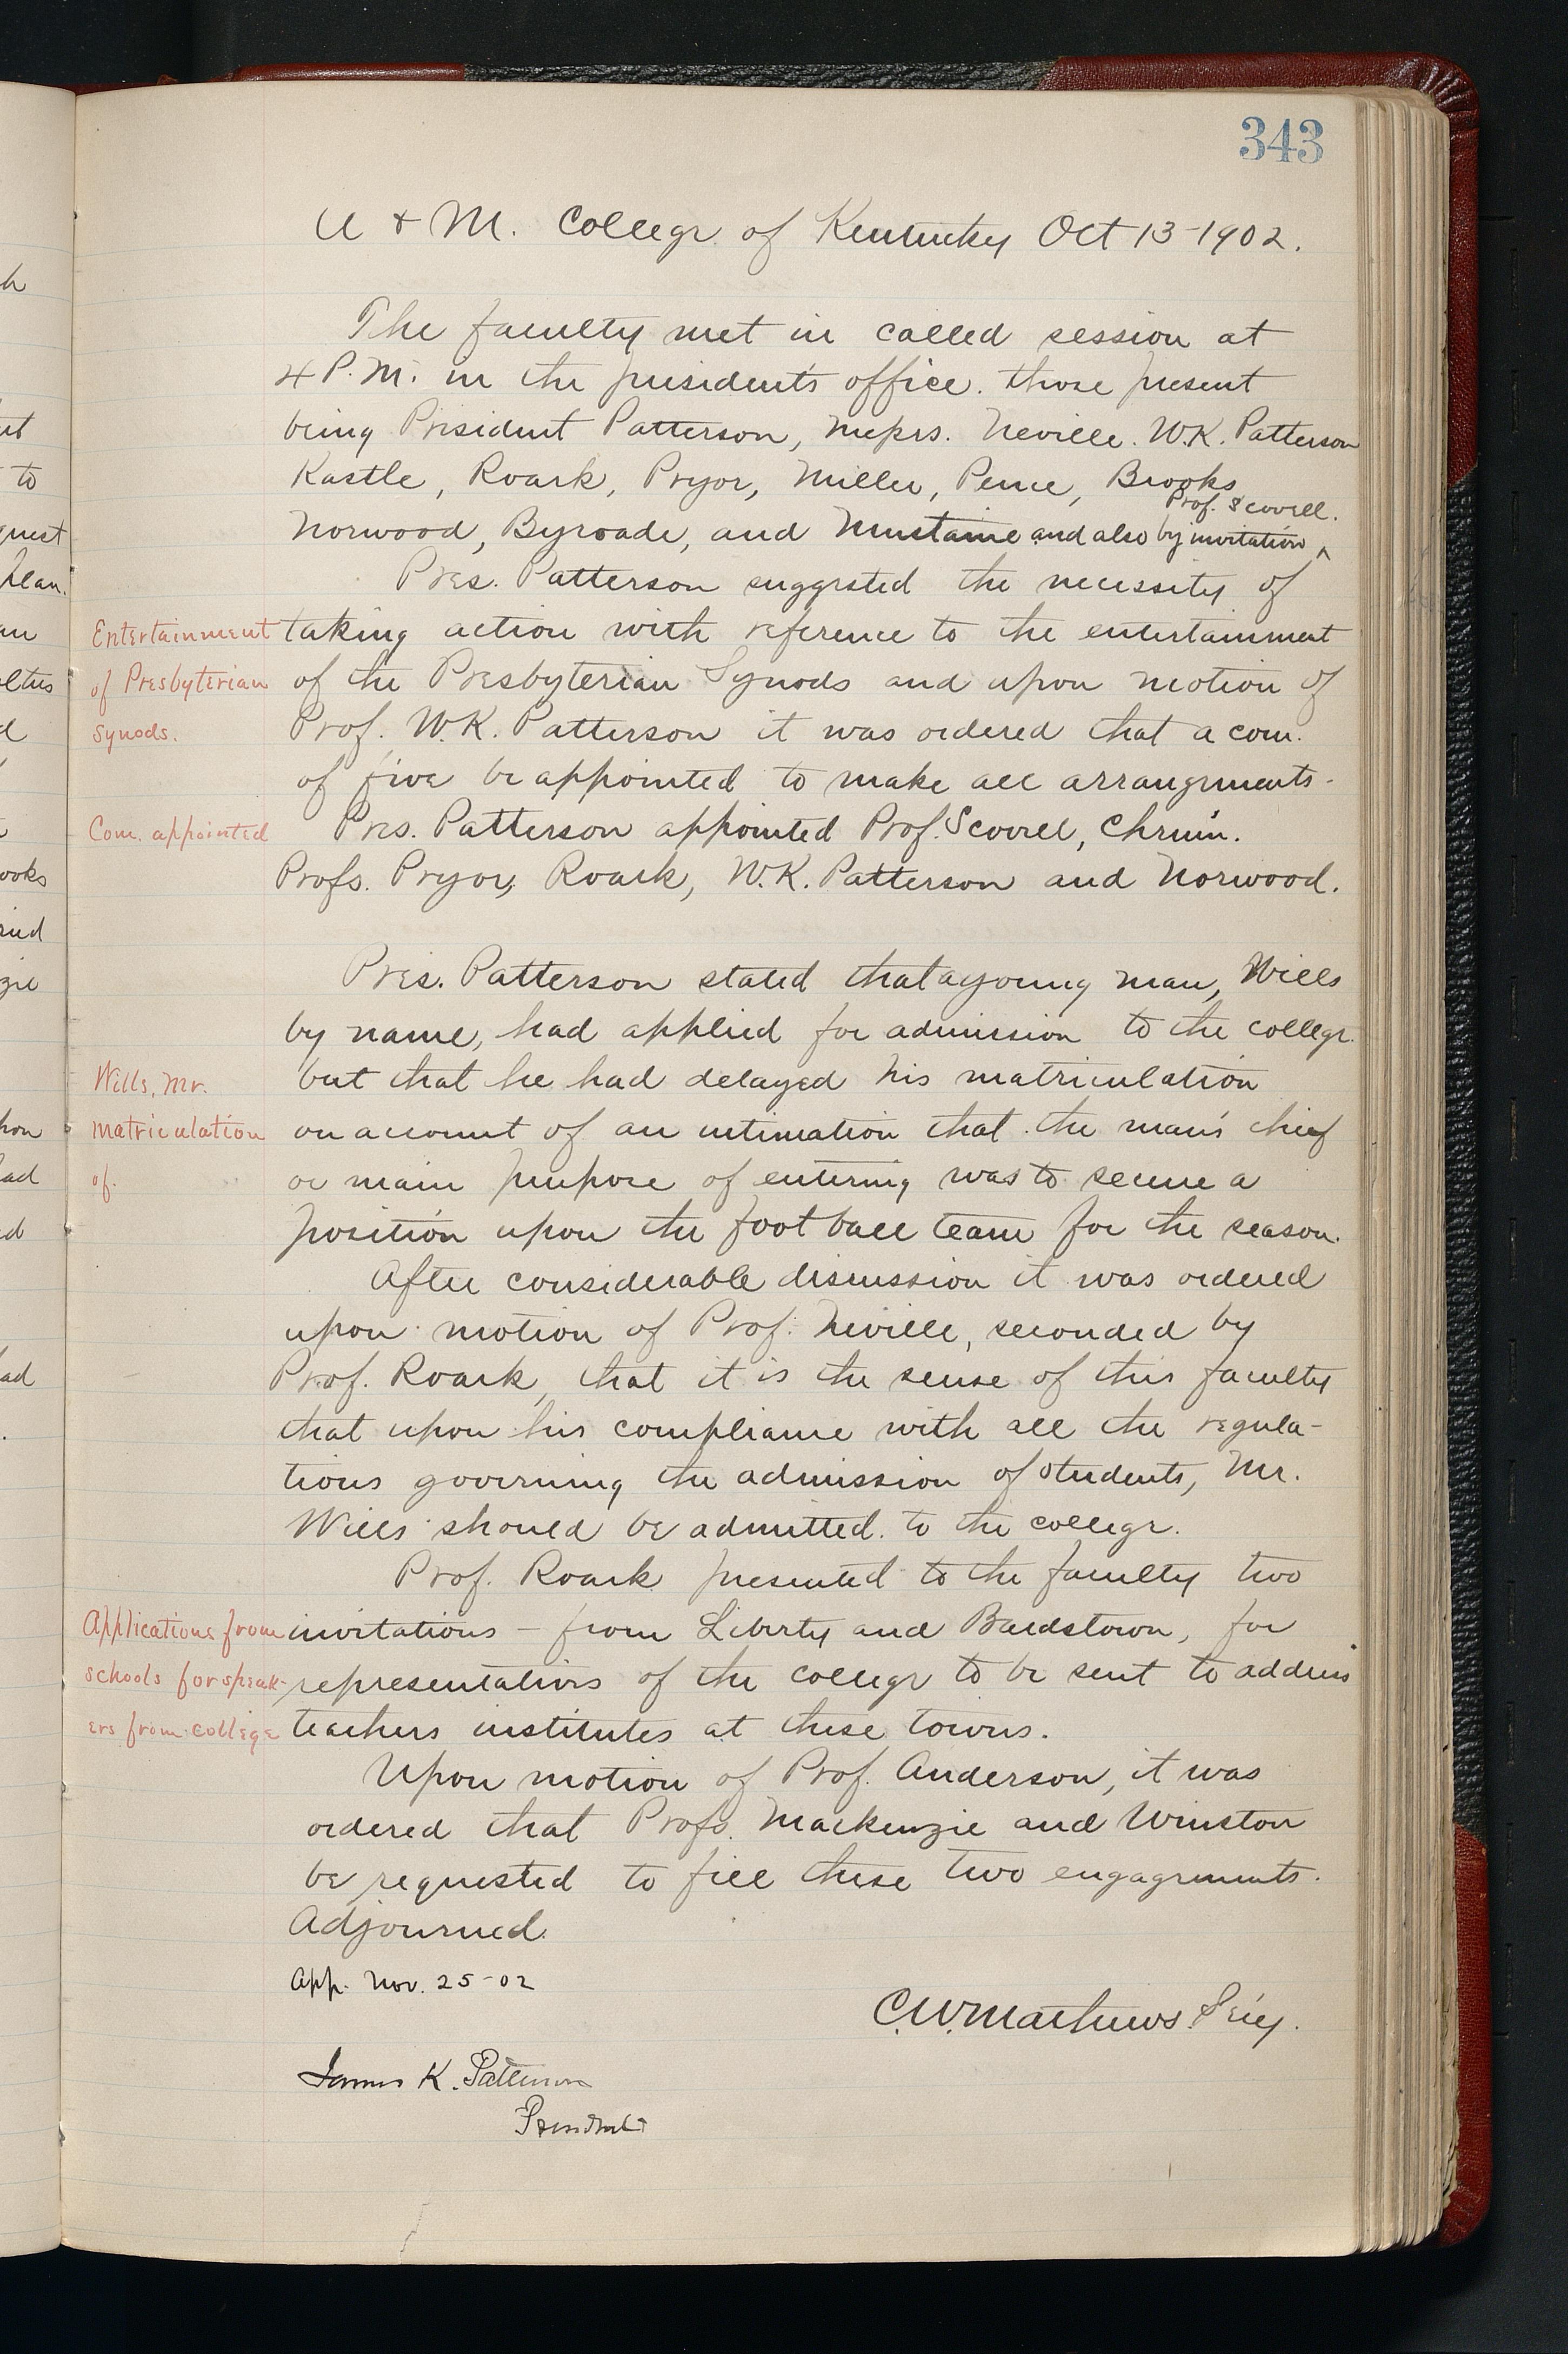 343
A & M. College of Kentucky Oct 13-1902.
The faculty met in called session at
4 P.M. in the president's office. those present
being President Patterson, Messrs. Neville. W.K. Patterson
Kastle, Roark, Pryor, Miller, Pence, Brooks
Prof. Scovell.
Norwood, Byroade, and Mustaine and also by invitation ^
Pres. Patterson suggested the necessity of
Entertainment taking action with reference to the entertainment
of Presbyterian of the Presbyterian Synods and upon motion of
Synods. Prof. W.K. Patterson it was ordered that a com.
of five be appointed to make all arrangements.
Com. appointed Pres. Patterson appointed Prof. Scovell, Chrmn.
Profs. Pryor, Roark, W.K. Patterson and Norwood.
Pres. Patterson stated that a young man, Wills
by name, had applied for admission to the college.
Wills, Mr. but that he had delayed his matriculation
matriculation on account of an intimation that the man's chief
of. or main purpose of entering was to secure a
position upon the foot ball team for the season.
After considerable discussion it was ordered
upon motion of Prof. Neville, seconded by
Prof. Roark, that it is the sense of this faculty
that upon his compliance with all the regula-
tions governing the admission of students, Mr.
Wills should be admitted to the college.
Prof. Roark presented to the faculty two
Applications from invitations - from Liberty and Bardstown, for
schools for speak- representatives of the college to be sent to address
ers from college teachers institutes at these towns.
Upon motion of Prof. Anderson, it was
ordered that Profs. Mackenzie and Winston
be requested to fill these two engagements.
Adjourned.
App. Nov. 25-02
C.W. Mathews Secy.
James K. Patterson
President